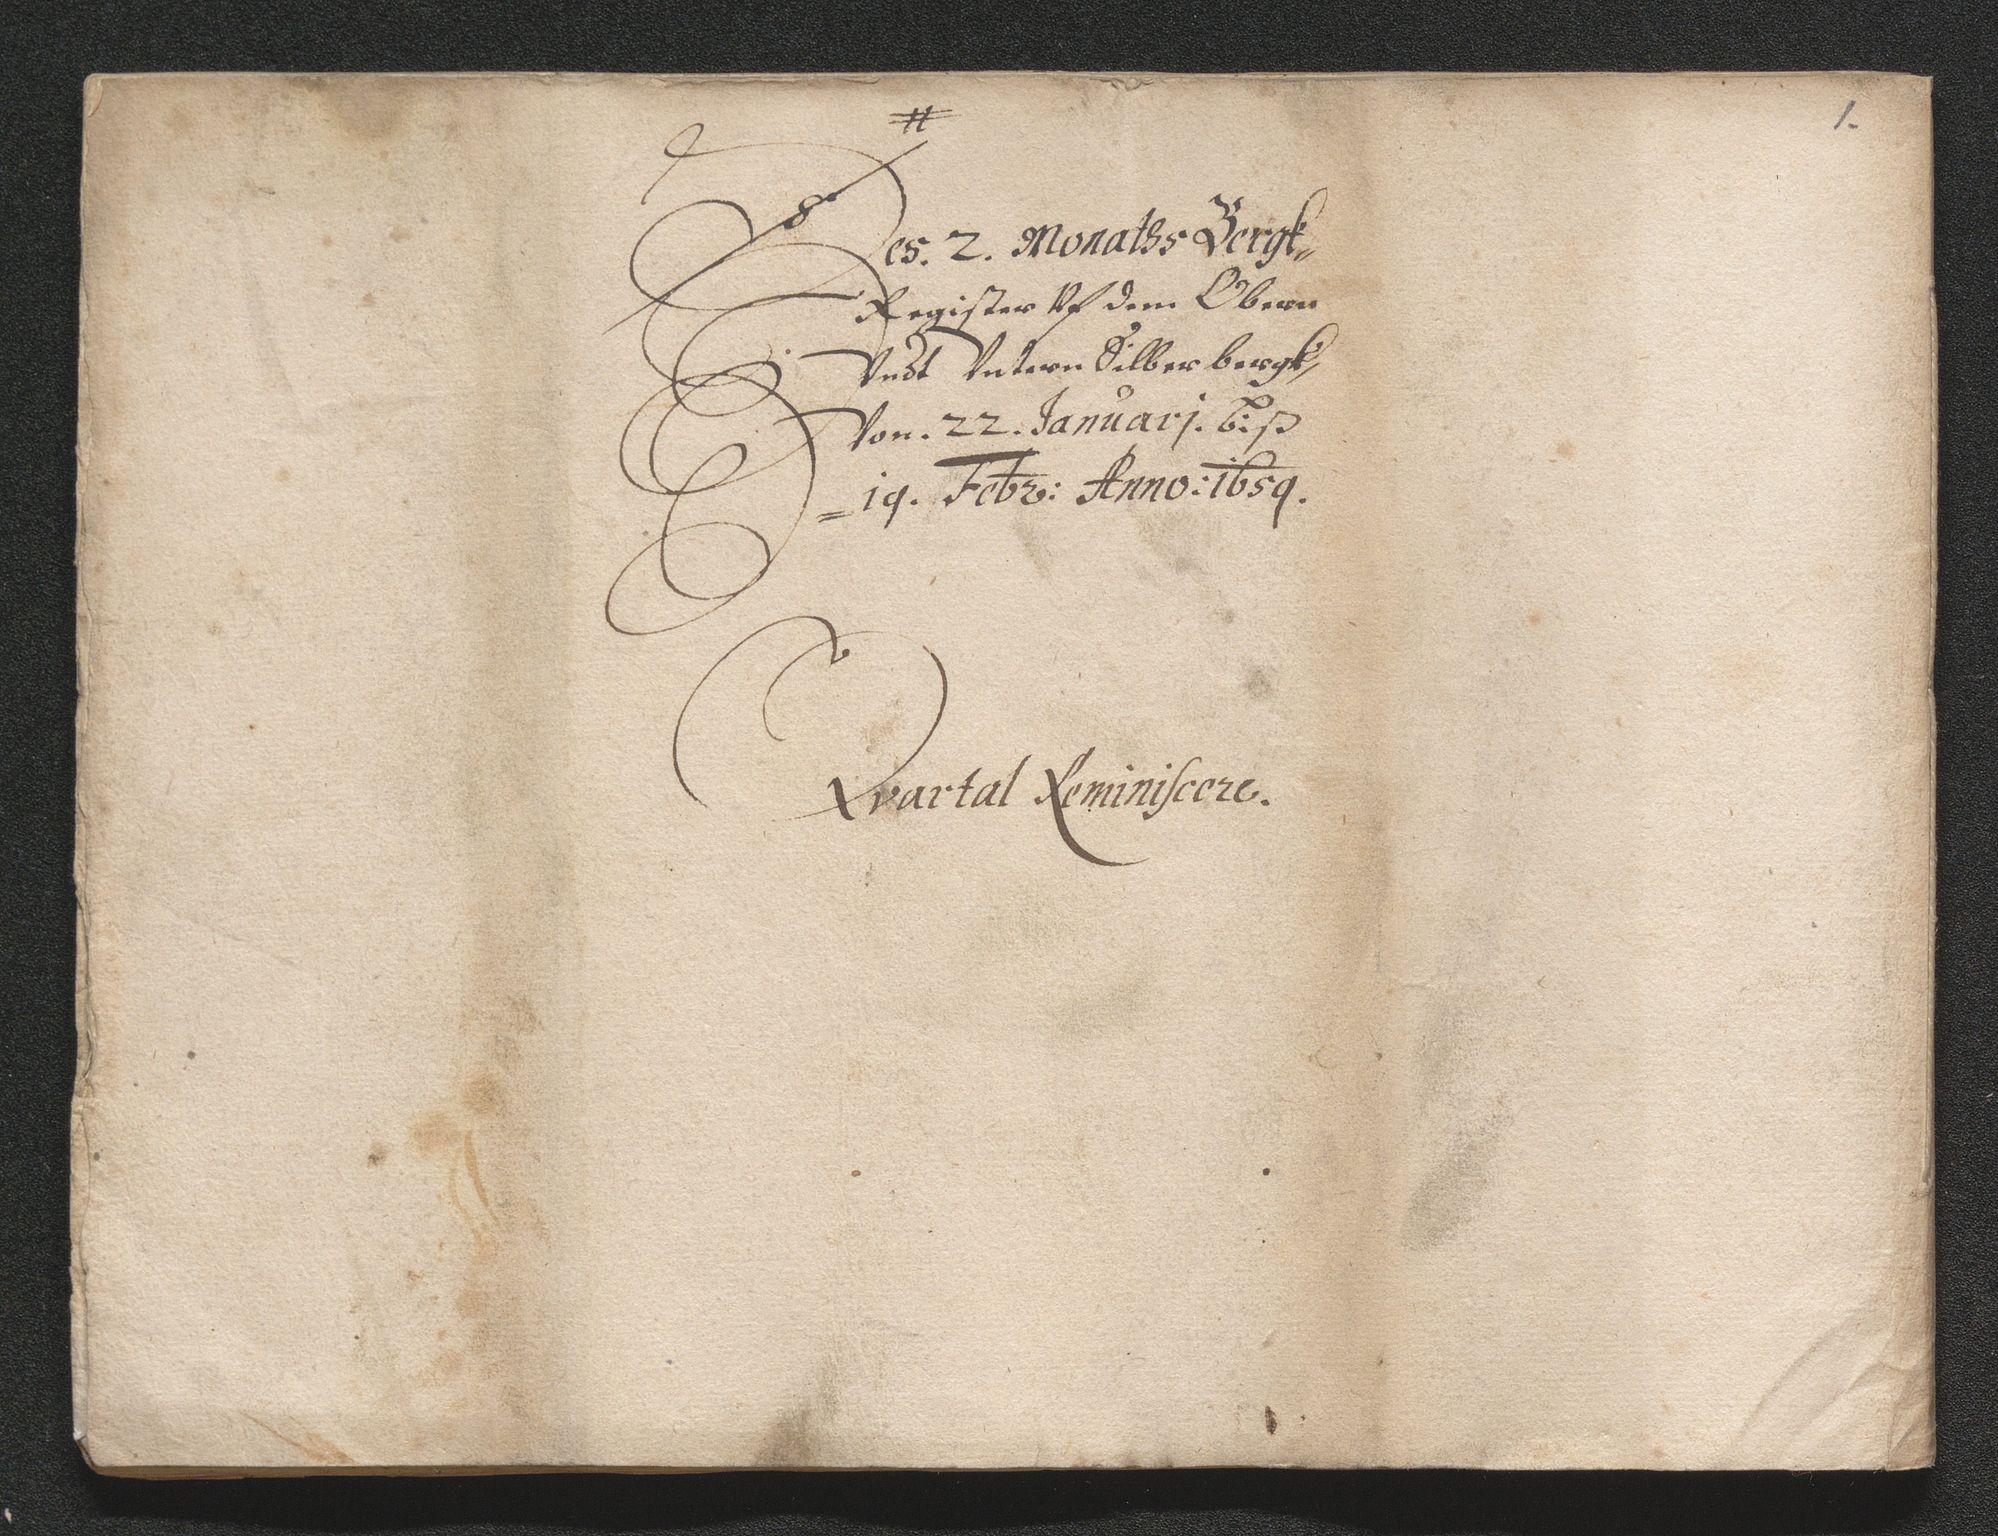 1.
Des. 2. Monaths Bergk„
Register Vf dem Obern
Vndt Vntern Silberbergk,
Von. 22. Januarj. biß
= 19. Febr: Anno: 1659.
Qvartal Reminiscere.